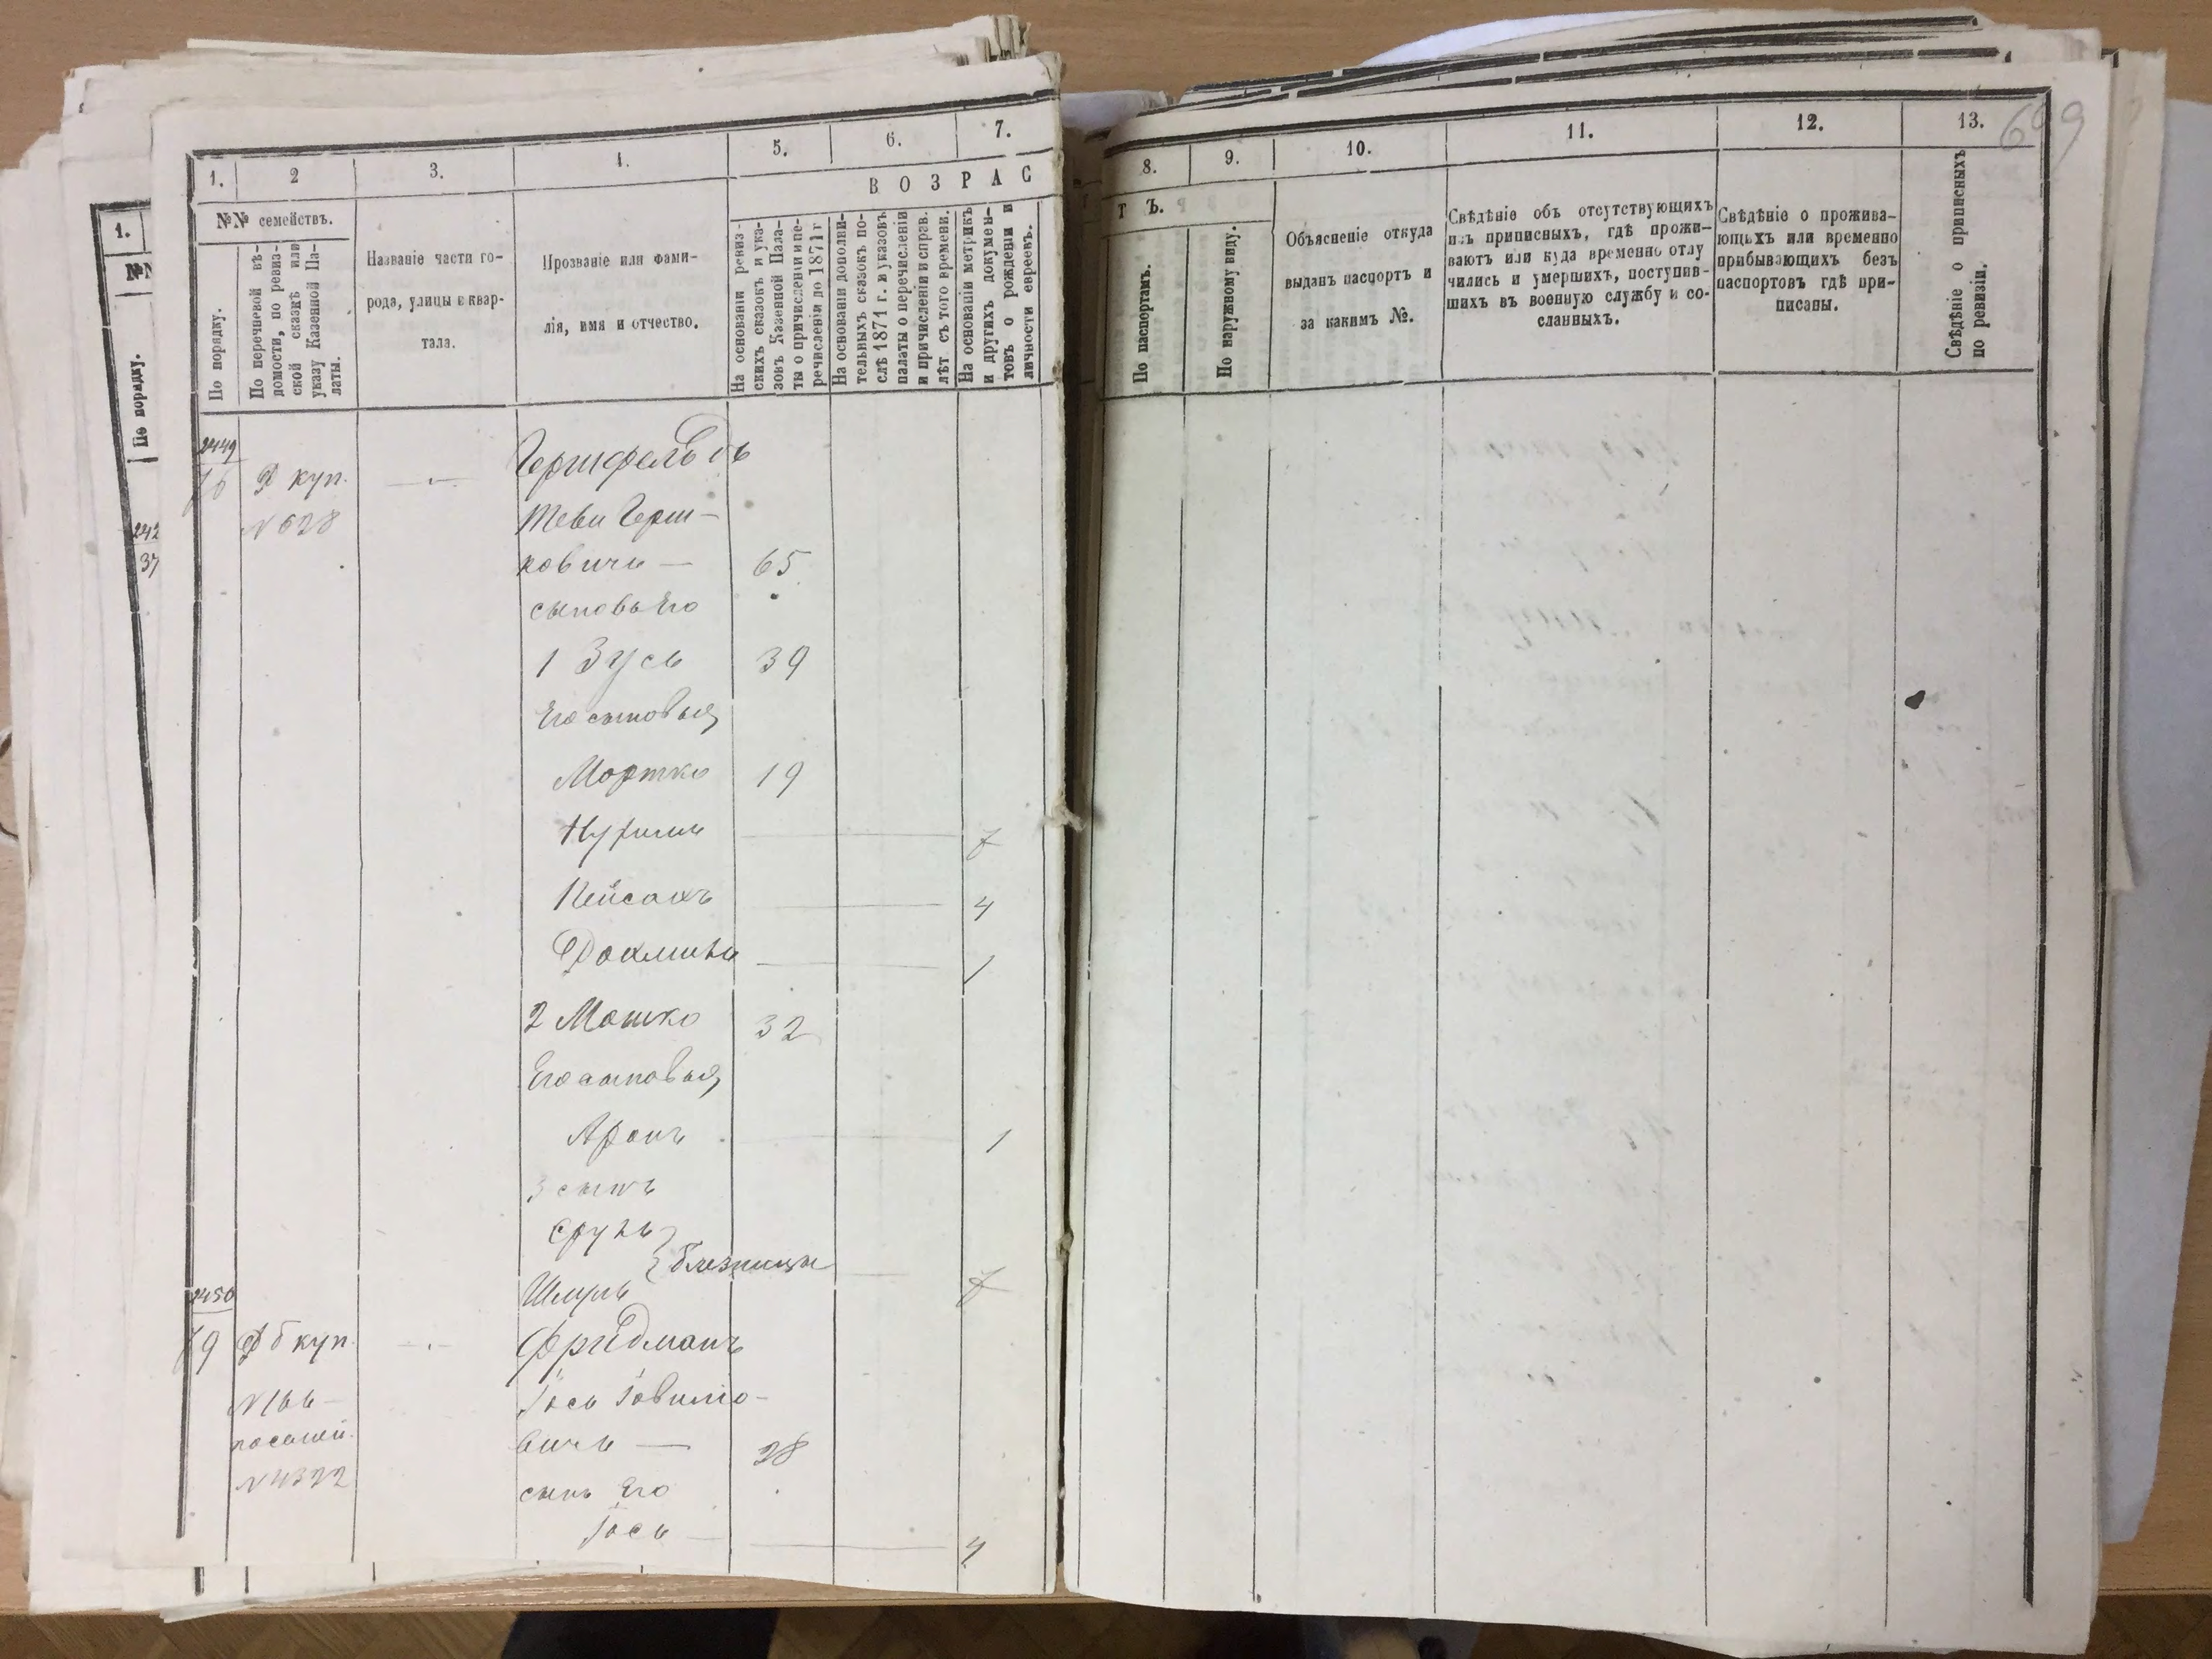 1.
2
3.
4.
5.
6.
7.
№№ семействъ.
По порядку.
По перечневой вѣ-
домости, по ревиз-
ской сказкѣ или
указу Казенной Па-
латы.
Названіе части го-
рода, улицы и квар-
тала.
Прозваніе или фами-
лія, имя и отчество.
ВОЗРАС
На основаніи ревиз-
скихъ сказокъ и ука-
зовъ Казенной Пала-
ты о причисленіи и пе-
речисленіи до 1871 г
На основаніи дополни-
тельныхъ сказокъ по-
слѣ 1871 г. и указовъ
палаты о перечисленіи
и причисленіи и справ.
лѣт съ того времени.
На основаніи метрикъ
и другихъ докумен-
товъ о рожденіи и
личности евреевъ.
8.
9.
10.
11.
12.
13.
699
ТЪ.
По паспортамъ.
По наружному виду.
Объясненіе откуда
выданъ паспортъ и
за какимъ №.
Свѣдѣніе объ отсутствующихъ
изъ приписныхъ, гдѣ прожи-
ваютъ или куда временно отлу
чились и умершихъ, поступив-
шихъ въ военную службу и со-
сланныхъ.
Свѣдѣніе о прожива-
ющихъ или временно
прибывающихъ безъ
паспортовъ гдѣ при-
писаны.
Свѣдѣніе о приписныхъ
по ревизіи.
1.
№№
По порядку.
242
37
2449
76 куп. Герифельдъ
N 628 Теви Герш-
ковичъ — 65
сыновья его
1 Зусь 39
Его сыновья
Мортко 19
Нухимъ 7
Пейсахъ 4
1
2 Мошко 32
Его сыновья
Аронъ 1
3 сынъ
Сруль
близнецы
Шмуль 7
2450
79 куп. Фридманъ
N 166 Іось Іовиліо-
посемей. вичъ — 28
N 4322 сынъ Его
Іось — 4